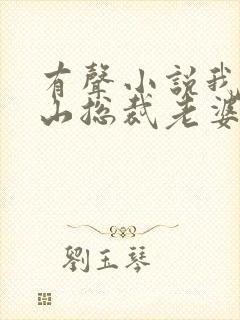 有聲小說我
山總裁老婆
劉玉琴